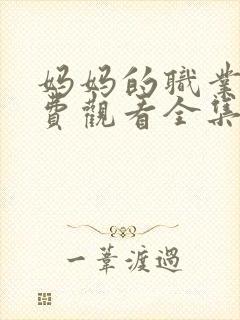 媽媽的職業
費觀看全集
一葦渡過